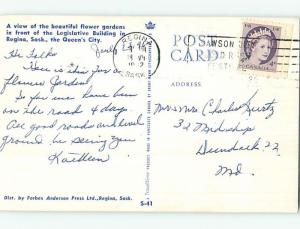 A view of the beautiful flower gardens
in front of the Legislative Building in
Regina, Sask., the Queen's City.
POST
CARD
REGINA
SASK.
DAWSON
Hi Folks
How is this for a
flower Garden?
So far we have been
on the road 4 days
All good roads and level
ground be seeing you
Kathleen
Mr & Mrs Charles Kurtz
32 Midship
Dundalk 22
Md.
Dist. by Forbes Anderson Press Ltd., Regina, Sask.
S-41